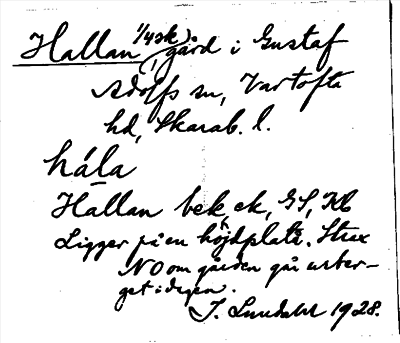 Hallan, 1/4 sk, gård i Gustaf
Adolfs sn, Vartofta
hd, Skarab. l.
hála
Hallan bek, ek, GS, Kb
Ligger på en höjdplatå. Strax
NO om gården går urber-
get i dagen.
J. Lundahl 1928.